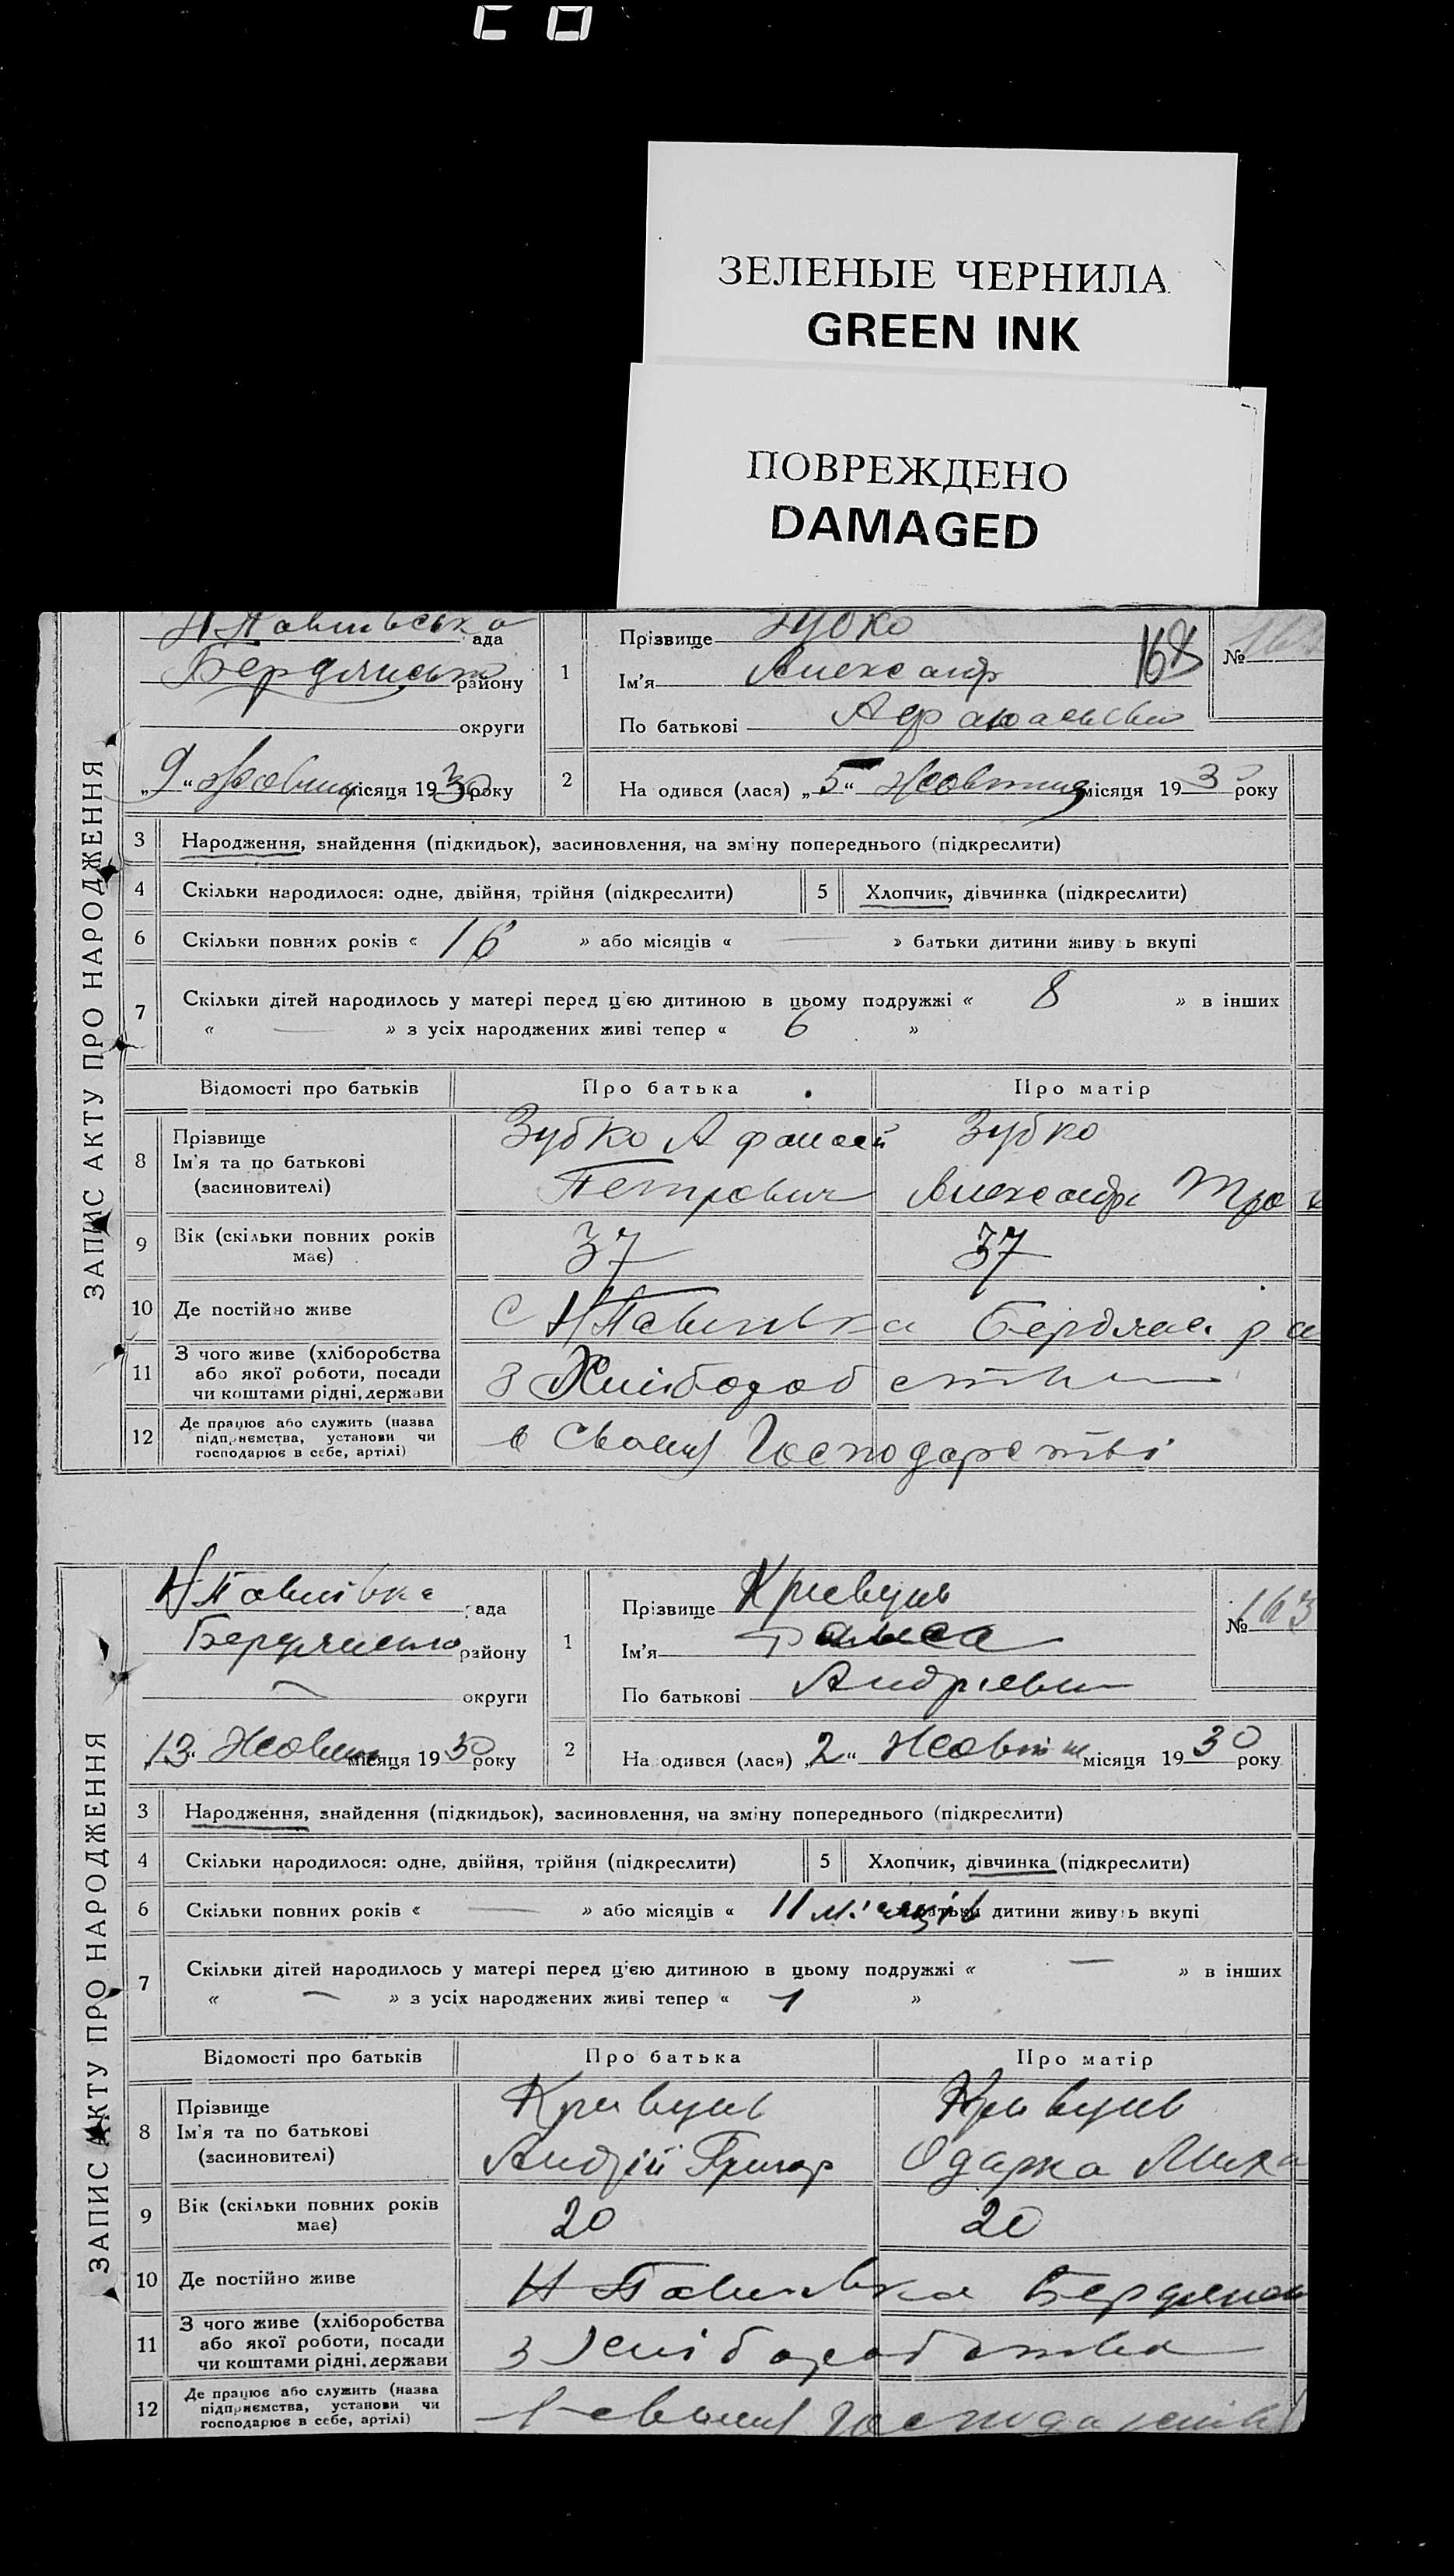 ЗЕЛЕНЫЕ ЧЕРНИЛА
GREEN INK
ПОВРЕЖДЕНО
DAMAGED
ЗАПИС АКТУ ПРО НАРОДЖЕННЯ
Н Павлівська ада
району
округи
1
Прізвище Зубко
Ім'я Александр
По батькові
168
№
„9“ місяця 1930 року
2
На одився (лася) „5“ місяця 193 року
3 Народження, знайдення (підкидьок), засиновлення, на зміну попереднього (підкреслити)
4 Скільки народилося: одне, двійня, трійня (підкреслити) 5 Хлопчик, дівчинка (підкреслити)
6 Скільки повних років « 16 » або місяців « — » батьки дитини живу ь вкупі
7 Скільки дітей народилось у матері перед ц'єю дитиною в цьому подружжі « 8 » в інших
« — » з усіх народжених живі тепер « 6 »
Відомості про батьків Про батька Про матір
8 Прізвище
Ім'я та по батькові
(засиновителі)
Зубко Афанасій
Петрович
Зубко
Александра
9 Вік (скільки повних років
має)
37 37
10 Де постійно живе
с Н Павлівка
11 З чого живе (хліборобства
або якої роботи, посади
чи коштами рідні, держави
з Хліборобства
12 Де працює або служить (назва
підприємства, установи чи
господарює в себе, артілі)
в своїм Господарстві
ЗАПИС АКТУ ПРО НАРОДЖЕННЯ
Н Павлівка ада
району
— округи
1
Прізвище Кривунь
Ім'я
По батькові Андрієвна
№ 163
„13“ місяця 1930 року
2
На одився (лася) „2“ місяця 1930 року
3 Народження, знайдення (підкидьок), засиновлення, на зміну попереднього (підкреслити)
4 Скільки народилося: одне, двійня, трійня (підкреслити) 5 Хлопчик, дівчинка (підкреслити)
6 Скільки повних років « — » або місяців « 11 місяців батьки дитини живу ь вкупі
7 Скільки дітей народилось у матері перед ц'єю дитиною в цьому подружжі « — » в інших
« — » з усіх народжених живі тепер « 1 »
Відомості про батьків Про батька Про матір
8 Прізвище
Ім'я та по батькові
(засиновителі)
Кривунь
Андрій Григор
Кривунь
Одарка Миха
9 Вік (скільки повних років
має)
20 20
10 Де постійно живе
Н Павлівка
11 З чого живе (хліборобства
або якої роботи, посади
чи коштами рідні, держави
з хліборобства
12 Де працює або служить (назва
підприємства, установи чи
господарює в себе, артілі)
в своїм Господарстві